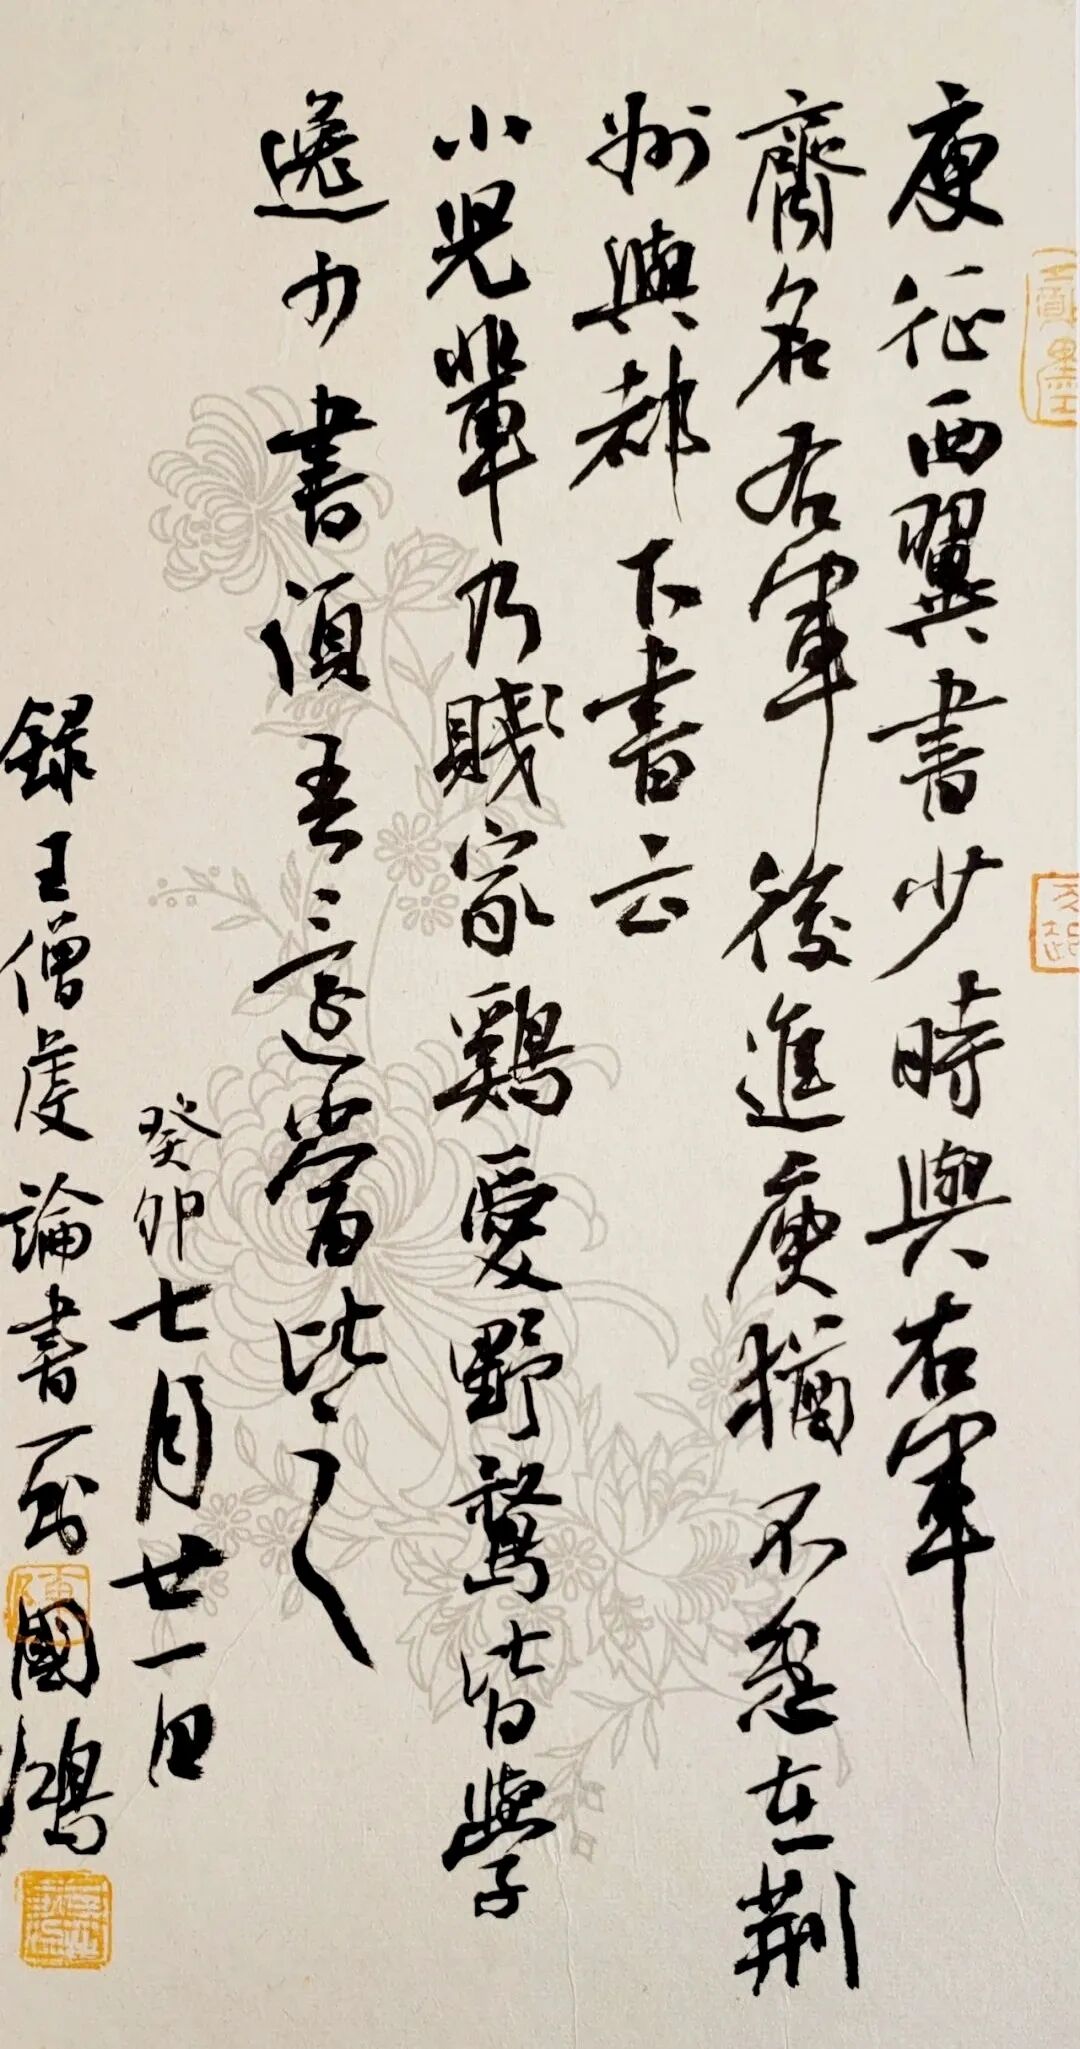 庾征西翼書少時與右軍
齊名右軍後進庾猶不忿在荆
州與都下書云
小兒輩乃賤家鷄愛野鶩皆學
逸少書須吾還當比之
癸卯七月廿一日
録王僧虔論書一則國鴻